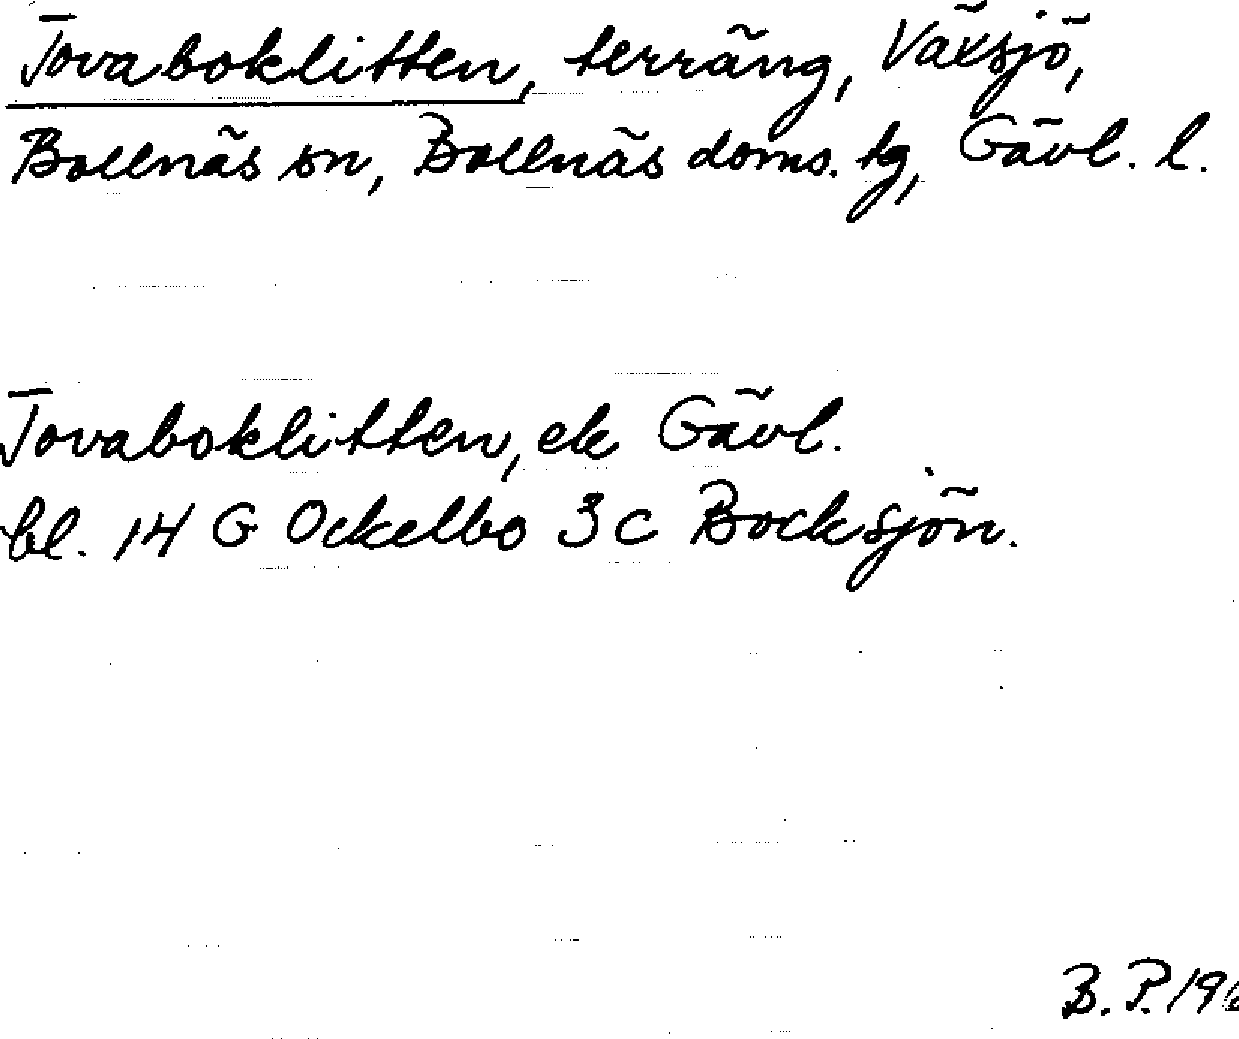 Tovaboklitten, terräng, Växsjö,
Bollnäs sn, Bollnäs doms. tg, Gävl. l.
Tovaboklitten, ek Gävl.
bl. 14 G Ockelbo 3 c Bocksjön.
B. P. 196